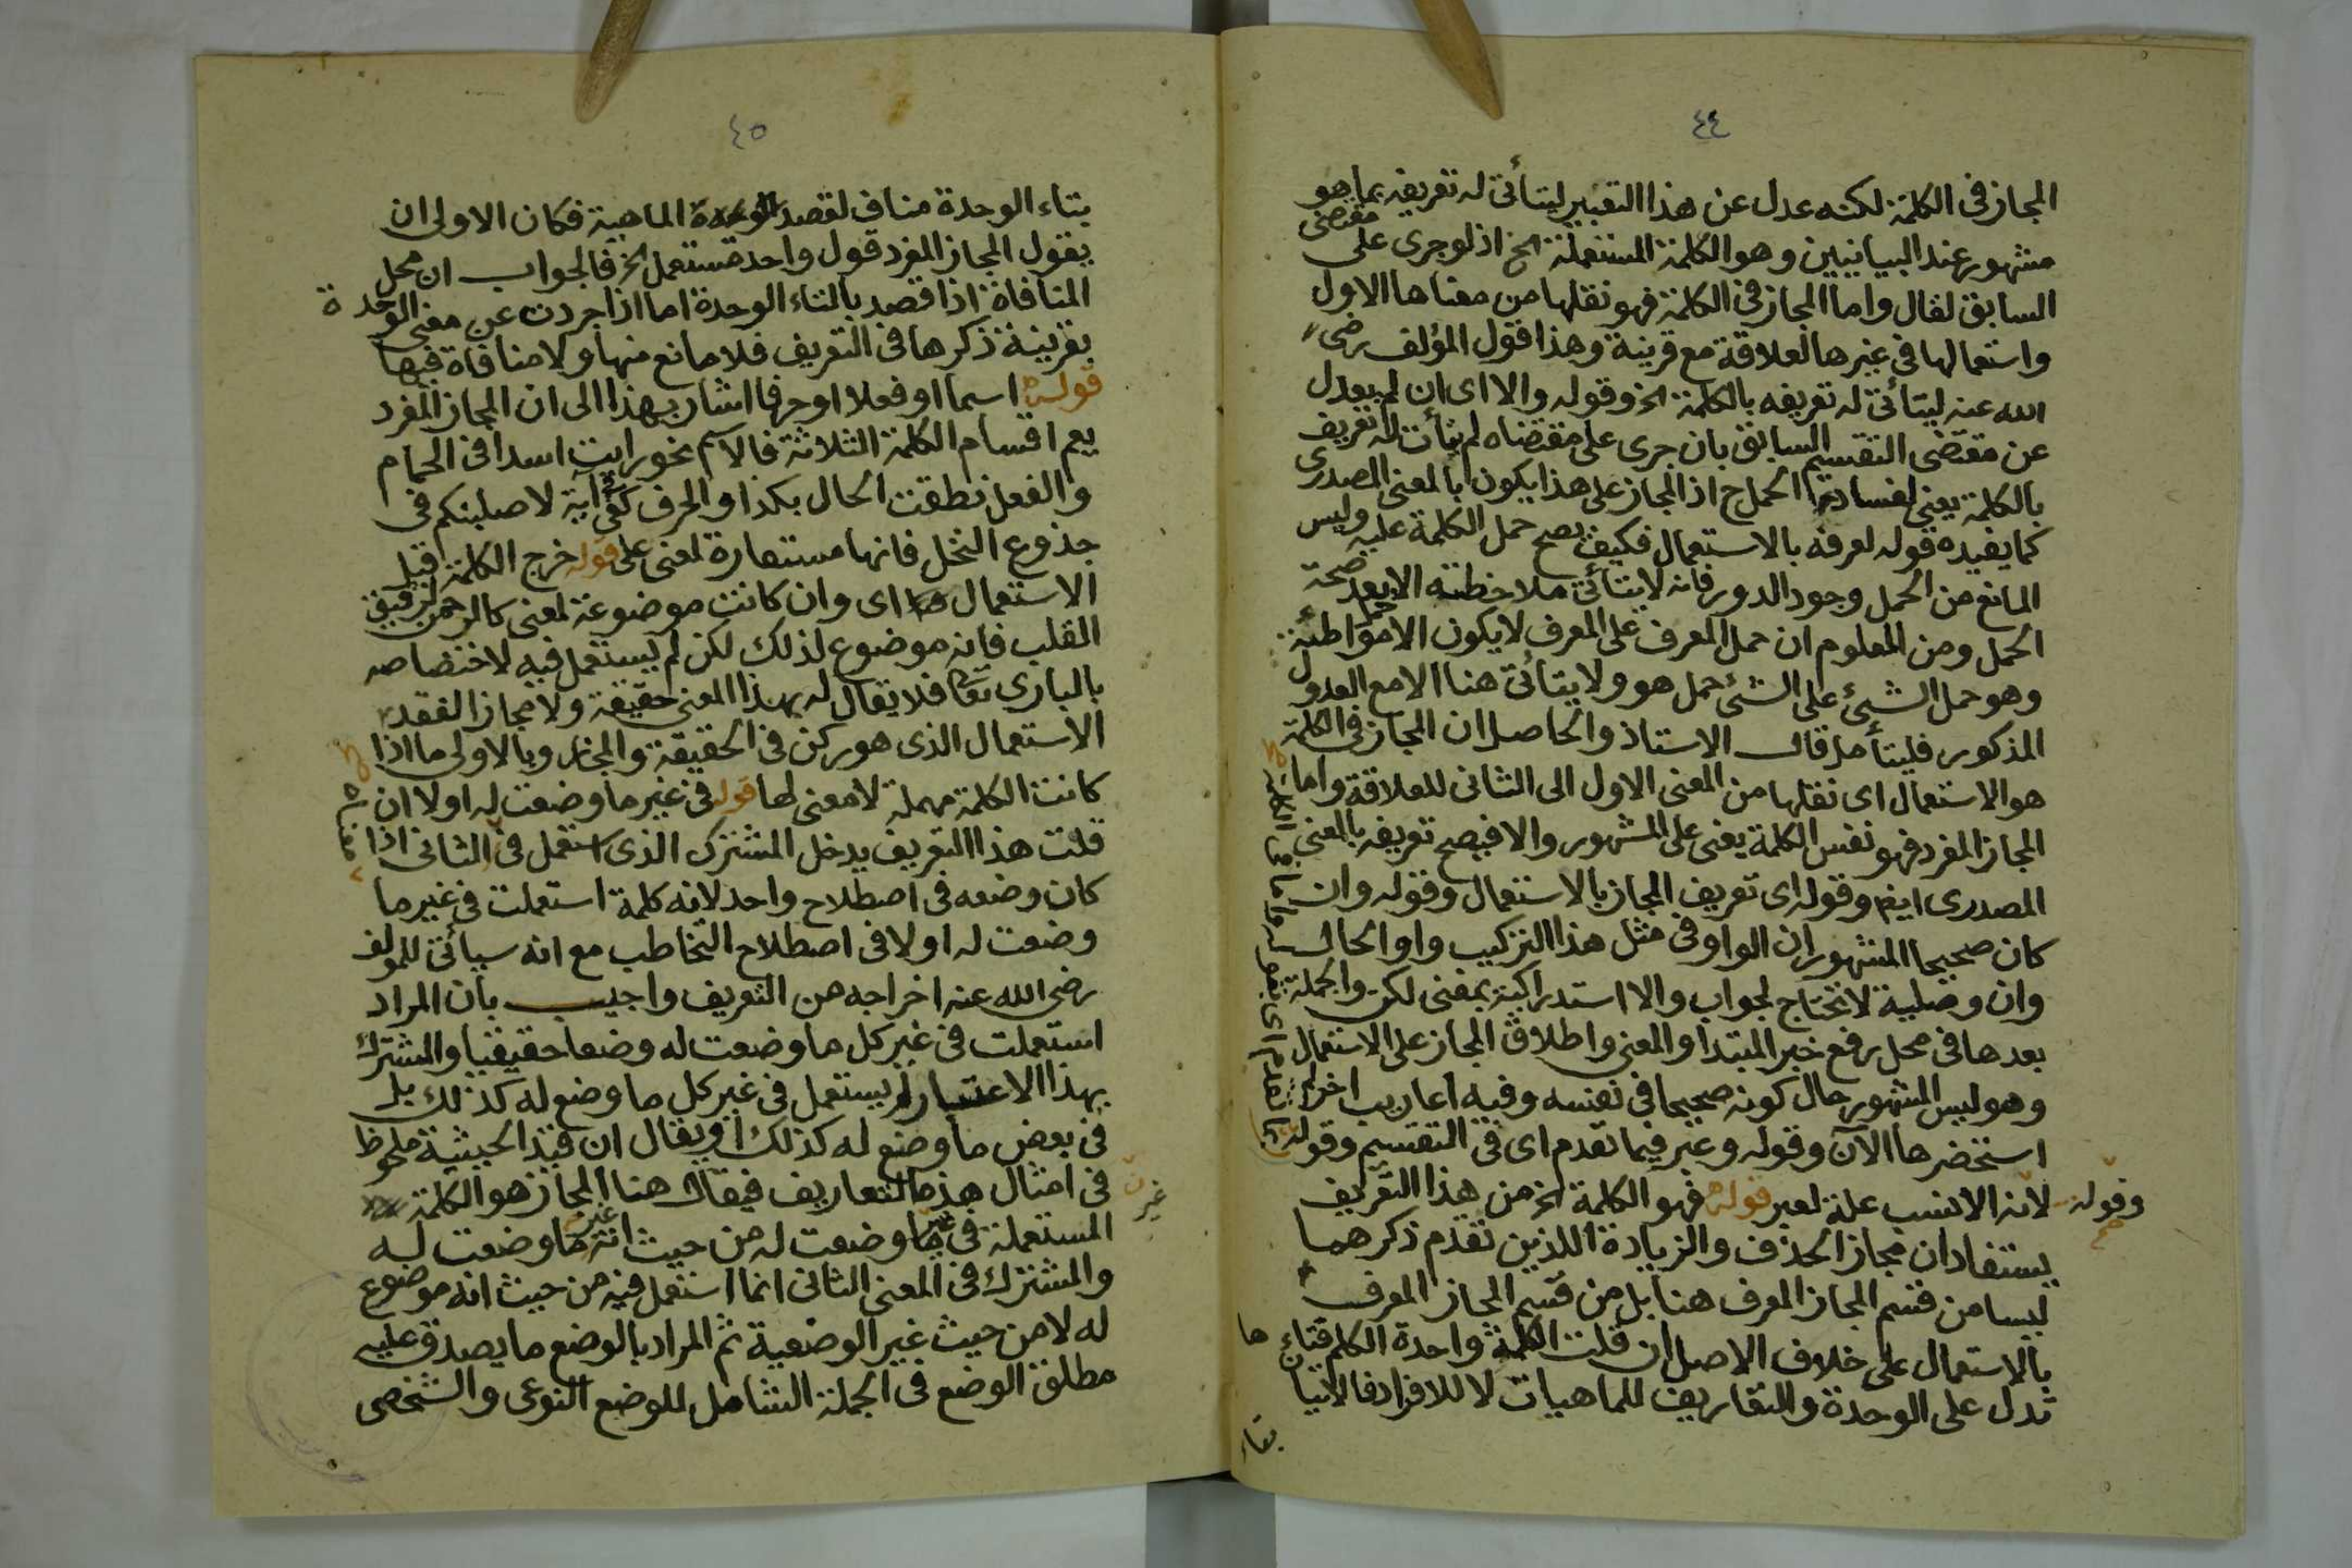 ٤٤
المجاز فى الكلمة لكنه عدل عن هذا التعبير ليتأتى له تعريفه بما هو
مشهور عند البيانيين وهو الكلمة المستعملة الخ اذ لو جرى على مقتضى
السابق لقال واما المجاز فى الكلمة فهو نقلها من معناها الاول
واستعمالها فى غيرها لعلاقة مع قرينة وهذا قول المؤلف رضى
الله عنه ليتأتى له تعريفه بالكلمة الخ وقوله والا اى ان لم يعدل
عن مقتضى التقسيم السابق بان جرى على مقتضاه لم يتأت له تعريف
بالكلمة يعنى لفساد الحمل ح اذ المجاز على هذا يكون بالمعنى المصدرى
كما يفيده قوله لعرفه بالاستعمال فكيف يصح حمل الكلمة عليه وليس
المانع من الحمل وجود الدور فانه لا يتأتى ملاحظته الا بعد صحة
الحمل ومن المعلوم ان حمل المعرف على المعرف لا يكون الا حمل مواطئة
وهو حمل الشئ على الشئ حمل هو هو ولا يتأتى هنا الا مع العدول
المذكور فليتأمل قال الاستاذ والحاصل ان المجاز فى الكلمة
هو الاستعمال اى نقلها من المعنى الاول الى الثانى للعلاقة واما
المجاز المفرد فهو نفس الكلمة يعنى على المشهور والا فيصح تعريفه بالمعنى
المصدرى ايضا وقوله اى تعريف المجاز بالاستعمال وقوله وان
كان صحيحا المشهور ان الواو فى مثل هذا التركيب واو الحال
وان وصلية لا تحتاج لجواب والا استدراكية بمعنى لكن والجملة
بعدها فى محل رفع خبر المبتدا والمعنى واطلاق المجاز على الاستعمال
وهو ليس المشهور حال كونه صحيحا فى نفسه وفيه اعاريب اخر
استحضرها الآن وقوله وعبر فيما تقدم اى فى التقسيم وقوله
وقوله لانه الانسب علة لعبر قوله فهو الكلمة الخ من هذا التعريف
يستفاد ان مجاز الحذف والزيادة اللذين تقدم ذكرهما
ليسا من قسم المجاز المعرف هنا بل من قسم المجاز المعرف
بالاستعمال على خلاف الاصل ان قلت الكلمة واحدة الكلم فتاءها
تدل على الوحدة والتعاريف للماهيات لا للافراد فالاتيان
بتاء
٤٥
بتاء الوحدة مناف لقصد الماهية فكان الاولى ان
يقول المجاز المفرد قول واحد مستعمل الخ فالجواب ان محل
المنافاة اذا قصد بالتاء الوحدة اما اذا جردت عن معنى الوحدة
بقرينة ذكرها فى التعريف فلا مانع منها ولا منافاة فيها
قوله اسما او فعلا او حرفا اشار بهذا الى ان المجاز المفرد
يعم اقسام الكلمة الثلاثة فالاسم نحو رايت اسدا فى الحمام
والفعل نطقت الحال بكذا والحرف كفى آية لاصلبنكم فى
جذوع النخل فانها مستعارة لمعنى على قوله خرج الكلمة قبل
الاستعمال اى وان كانت موضوعة لمعنى كالرحمن لرقيق
القلب فانه موضوع لذلك لكن لم يستعمل فيه لاختصاصه
بالبارى تعالى فلا يقال له بهذا المعنى حقيقة ولا مجاز الفقد
الاستعمال الذى هو ركن فى الحقيقة والمجاز وبالاولى ما اذا
كانت الكلمة مهملة لا معنى لها قوله فى غير ما وضعت له اولا ان
قلت هذا التعريف يدخل المشترك الذى استعمل فى الثانى اذا
كان وضعه فى اصطلاح واحد لانه كلمة استعملت فى غير ما
وضعت له اولا فى اصطلاح التخاطب مع انه سيأتى للمؤلف
رضى الله عنه اخراجه من التعريف واجيب بان المراد
استعملت فى غير كل ما وضعت له وضعا حقيقيا والمشترك
بهذا الاعتبار لم يستعمل فى غير كل ما وضع له كذلك بل
فى بعض ما وضع له كذلك او يقال ان قيد الحيثية ملحوظ
فى امثال هذه التعاريف فيقال هنا المجاز هو الكلمة
المستعملة فى غير ما وضعت له من حيث انه غير ما وضعت له
والمشترك فى المعنى الثانى انما استعمل فيه من حيث انه موضوع
له لا من حيث غير الوضعية ثم المراد بالوضع ما يصدق عليه
مطلق الوضع فى الجملة الشامل للوضع النوعى والشخصى